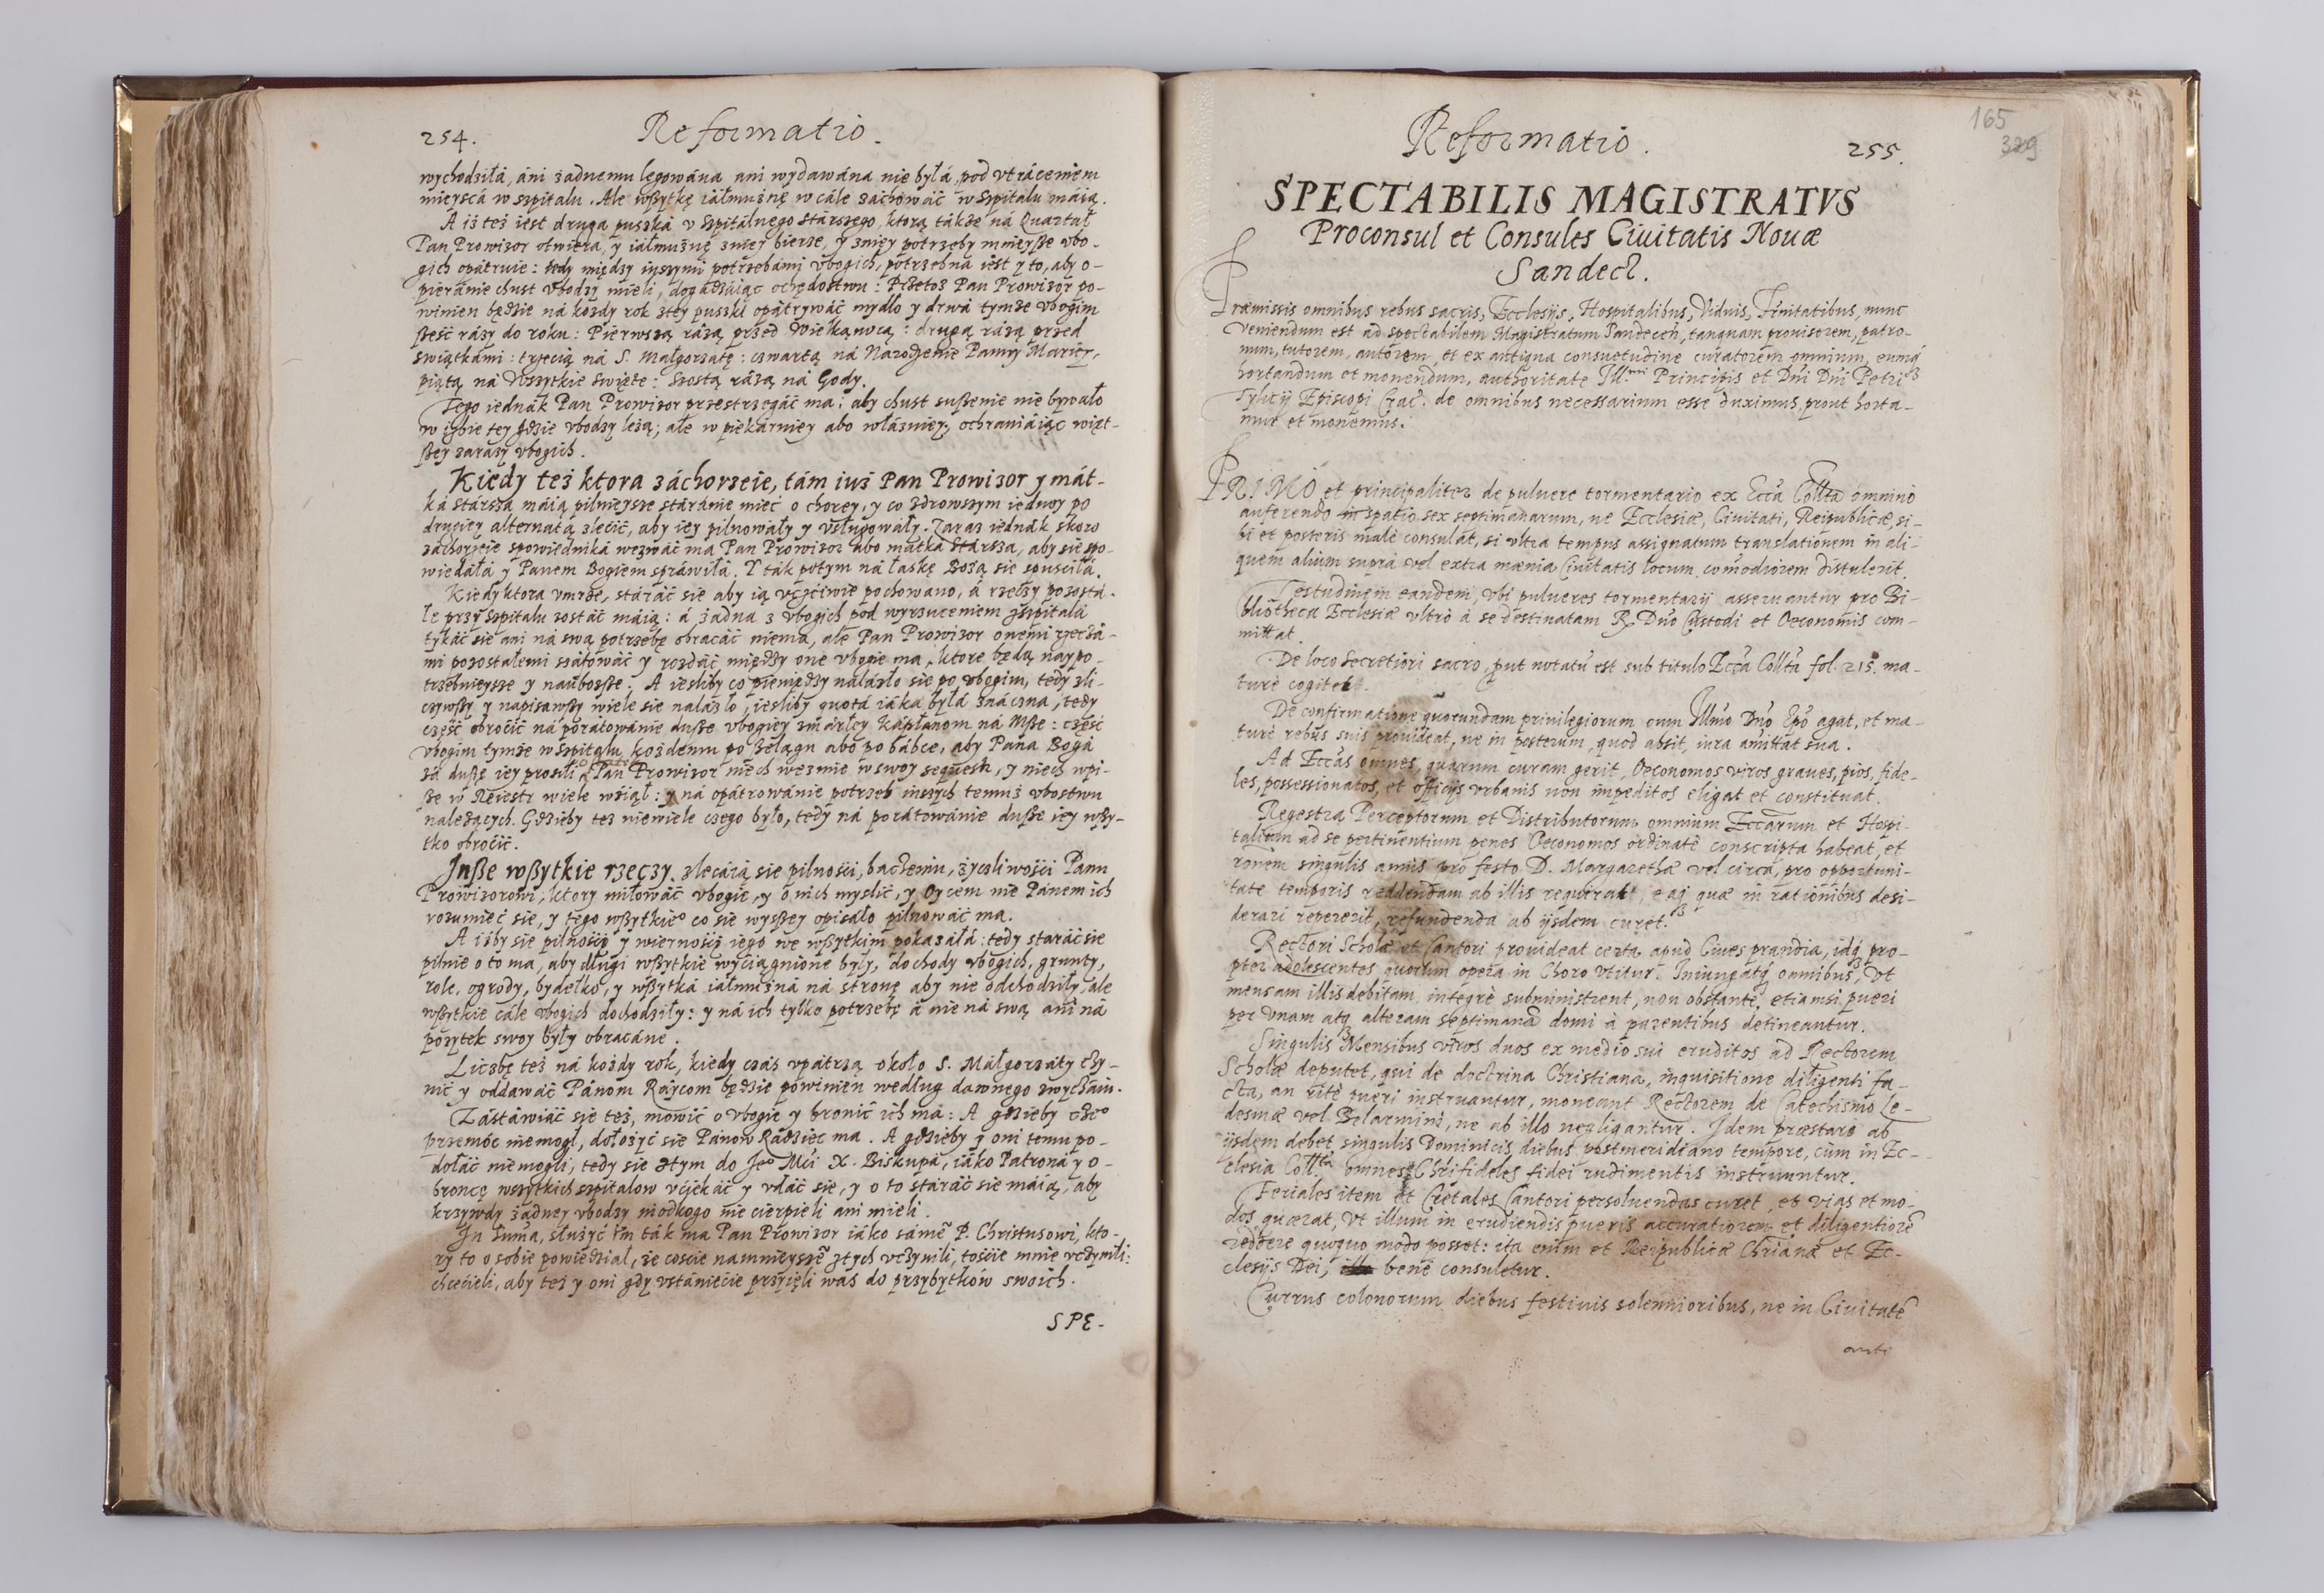 254. Reformatio.
wychodziłá, áni zadnemu legowána ani wydawána nie byłá, pod vtráceniem
mieyscá w szpitalu. Ale wßytkę iáłmużnę w cále záchowáć w szpitalu máią.
A iż też iest druga puszká v szpitálnego stárszego, ktorą tákże ná Quartał
Pan Prowizor otwiera, y iáłmużnę zniey bierze, y zniey potrzeby mnieyße vbo-
gich opátruie: tedy między inszymi potrzebámi vbogich, potrzebna iest y to, aby o-
pieránie chust vbodzy mieli, dogadzáiąc ochędostwu: Przetoż Pan Prowizor po-
winien będzie ná kożdy rok ztey puszki opátrywáć mydło y drwá tymże vbogim
ßeść rázy do roku: Pierwszą rázą przed Wielkąnocą: drugą rázą przed
świątkámi: trzecią ná S. Małgorzatę: czwartą ná Narodzenie Panny Mariey,
piątą ná Wszytkie Swięte: szostą rázą ná Gody.
Tego iednák Pan Prowizor przestrzegáć ma: aby chust sußenie nie bywało
w izbie tey gdzie vbodzy leżą; ale w piekárniey abo włázniey, ochraniáiąc więt-
ßey zarázy vbogich.
Kiedy też ktora záchorzeie, tám iuż Pan Prowizor y mát-
ká stársza máią pilnieysze stáránie mieć o chorey, y co zdrowszym iednoy po
drugiey alternatą zlecić, aby iey pilnowáły y vsługowáły. Zaraz iednák skoro
záchorzeie spowiedniká wezwáć ma Pan Prowizor abo mátká stársza, aby sie spo-
wiedáłá y Panem Bogiem spráwiłá. Y ták potym ná łaskę Bożą sie spuściłá.
Kiedy ktora vmrze, stáráć sie aby ią vczciwie pochowano, á rzeczy pozostá-
łe przy szpitalu zostáć máią: á żadna z vbogich pod wyrzuceniem zszpitalá
tykáć sie ani ná swą potrzebę obracáć niema, ale Pan Prowizor onemi rzeczá-
mi pozostałemi száfowáć y rozdáć między one vbogie ma, ktore będą naypo-
trzebnieysze y naüboższe. A iesliby co pieniędzy nálázło sie po vbogim, tedy zli-
czywßy y napisawßy wiele sie nalázło, iesliby quotá iáka byłá znáczna, tedy
część obrocić ná porátowánie duße vbogiey zmárłey kápłanom ná Mße: część
vbogim tymże w szpitalu kożdemu po szelągu abo po bábce, aby Pana Bogá
zá dußę iey prosili Pan Prowizor niech wezmie w swoy sequestr, y niech wpi-
ße w Reiestr wiele wziął: y ná opátrowánie potrzeb inszych temuż vbostwu
należących. Gdzieby też niewiele czego było, tedy ná porátowánie duße iey wßy-
tko obrocić.
Inße wßytkie rzeczy zlecáią sie pilności, baczeniu, życzliwości Panu
Prowizorowi, ktory miłowáć vbogie, y o nich myslić, y Oycem nie Pánem ich
rozumieć sie, y tego wßytkiego co sie wyßßey opisało pilnowáć ma.
A iżby sie pilność y wierność iego we wßytkim pokazáłá: tedy staráć sie
pilnie o to ma, aby długi wßytkie wyciągnione były, dochody vbogich, grunty,
role, ogrody, bydełko, y wßytká iáłmużná ná stronę aby nie odchodziły, ale
wßytkie cále vbogich dochodziły: y ná ich tylko potrzebę á nie ná swą ani ná
pożytek swoy były obracáne.
Liczbę też ná kożdy rok, kiedy czás vpátrzą około S. Małgorzáty czy-
nić y oddawáć Pánom Raycom będzie powinien według dawnego zwyczáiu.
Zástáwiáć sie też, mowić o vbogie y bronić ich ma: A gdzieby czego
przemóc niemogł, dołożyć sie Pánow Rádziec ma. A gdzieby y oni temu po-
dołáć niemogli, tedy sie ztym do Jeo Mći X. Biskupá, iáko Patroná y o-
brońcę wszytkich szpitalow vćiekáć y vdáć sie, y o to stáráć sie máią, aby
krzywdy żadney vbodzy niodkogo nie cierpieli ani mieli.
In suma, służyć im ták ma Pan Prowizor iáko sáme P. Christusowi, kto-
ry to o sobie powiedział, że coście namnieyszē ztych vczynili, tościе mnie vczynili:
chcećieli, aby też y oni gdy vstániećie przyięli was do przybytków swoich.
SPE-
165
329
Reformatio. 255.
SPECTABILIS MAGISTRATVS
Proconsul et Consules Ciuitatis Nouæ
Sandecz.
Præmissis omnibus rebus sacris, Ecclesijs, Hospitalibus, Viduis, nunc
veniendum est ad spectabilem Magistratum Sandecen, tanquam prouisorem, patro-
num, tutorem, autorem, et ex antiqua consuetudine curatorem omnium, eumq3
hortandum et monendum, authoritate Ill.mi Principis et Dñi Dñi Petri
Tylicij Episcopi Crac. de omnibus necessarium esse duximus, prout horta-
mur et monemus.
PRIMO et principaliter de puluere tormentario ex Ecca Collta omnino
auferendo in spatio sex septimanarum, ne Ecclesiæ, Ciuitati, Reipublicæ, si-
bi et posteris malè consulat, si vltra tempus assignatum translationem in ali-
quem alium suprà vel extra mænia Ciuitatis locum comodiorem distulerit.
Testudinem eandem, vbi pulueres tormentarij asseruantur pro Bi-
bliotheca Ecclesiæ vltrò à se destinatam R. Dño Custodi et Oeconomis com-
mittat.
De loco secretiori sacro, put notatū est sub titulo Ecca Collta fol. 215. ma-
turè cogitet.
De confirmatione quorundam priuilegiorum cum Illmo Dño Epo agat, et ma-
turè rebus suis prouideat, ne in posterum, quod absit, iura amittat sua.
Ad Eccas omnes, quarum curam gerit, Oeconomos viros graues, pios, fide-
les, possessionatos, et officijs vrbanis non impeditos eligat et constituat.
Regestra Perceptorum et Distributorum omnium Eccarum et Hospi-
talium ad se pertinentium penes Oeconomos ordinatè conscripta habeat, et
ronem singulis annis pro festo D. Margarethæ vel circa, pro opportuni-
tate temporis reddendam ab illis requirat, eaq3 quæ in rationibus desi-
derari repererit, refundenda ab ijsdem curet.
Rectori Scholæ et Cantori prouideat certa apud Ciues prandia, idq3 pro-
pter adolescentes quorum opera in Choro vtitur. Iniungatq3 omnibus, vt
mensam illis debitam integrè subministrent, non obstante, etiamsi pueri
per vnam atq3 alteram septimanā domi à parentibus detineantur.
Singulis Mensibus viros duos ex medio sui eruditos ad Rectorem
Scholæ deputet, qui de doctrina Christiana, inquisitione diligenti fa-
cta, an ritè pueri instruantur, moneant Rectorem de Catechismo Le-
desmæ vel Belarmini, ne ab illo negligantur. Idem præstari ab
ijsdem debet singulis Dominicis diebus postmeridiano tempore, cùm in Ec-
clesia Collta omnes Chrifideles fidei rudimentis instruuntur.
Feriales item et Cretales Cantori persoluendas curet, et vias et mo-
dos quærat, vt illum in erudiendis pueris accuratiorem et diligentiorē
reddere quoquo modo posset: ita enim et Reipublicæ Chrianæ et Ec-
clesijs Dei, benè consuletur.
Currus colonorum diebus festiuis solennioribus, ne in Ciuitatē